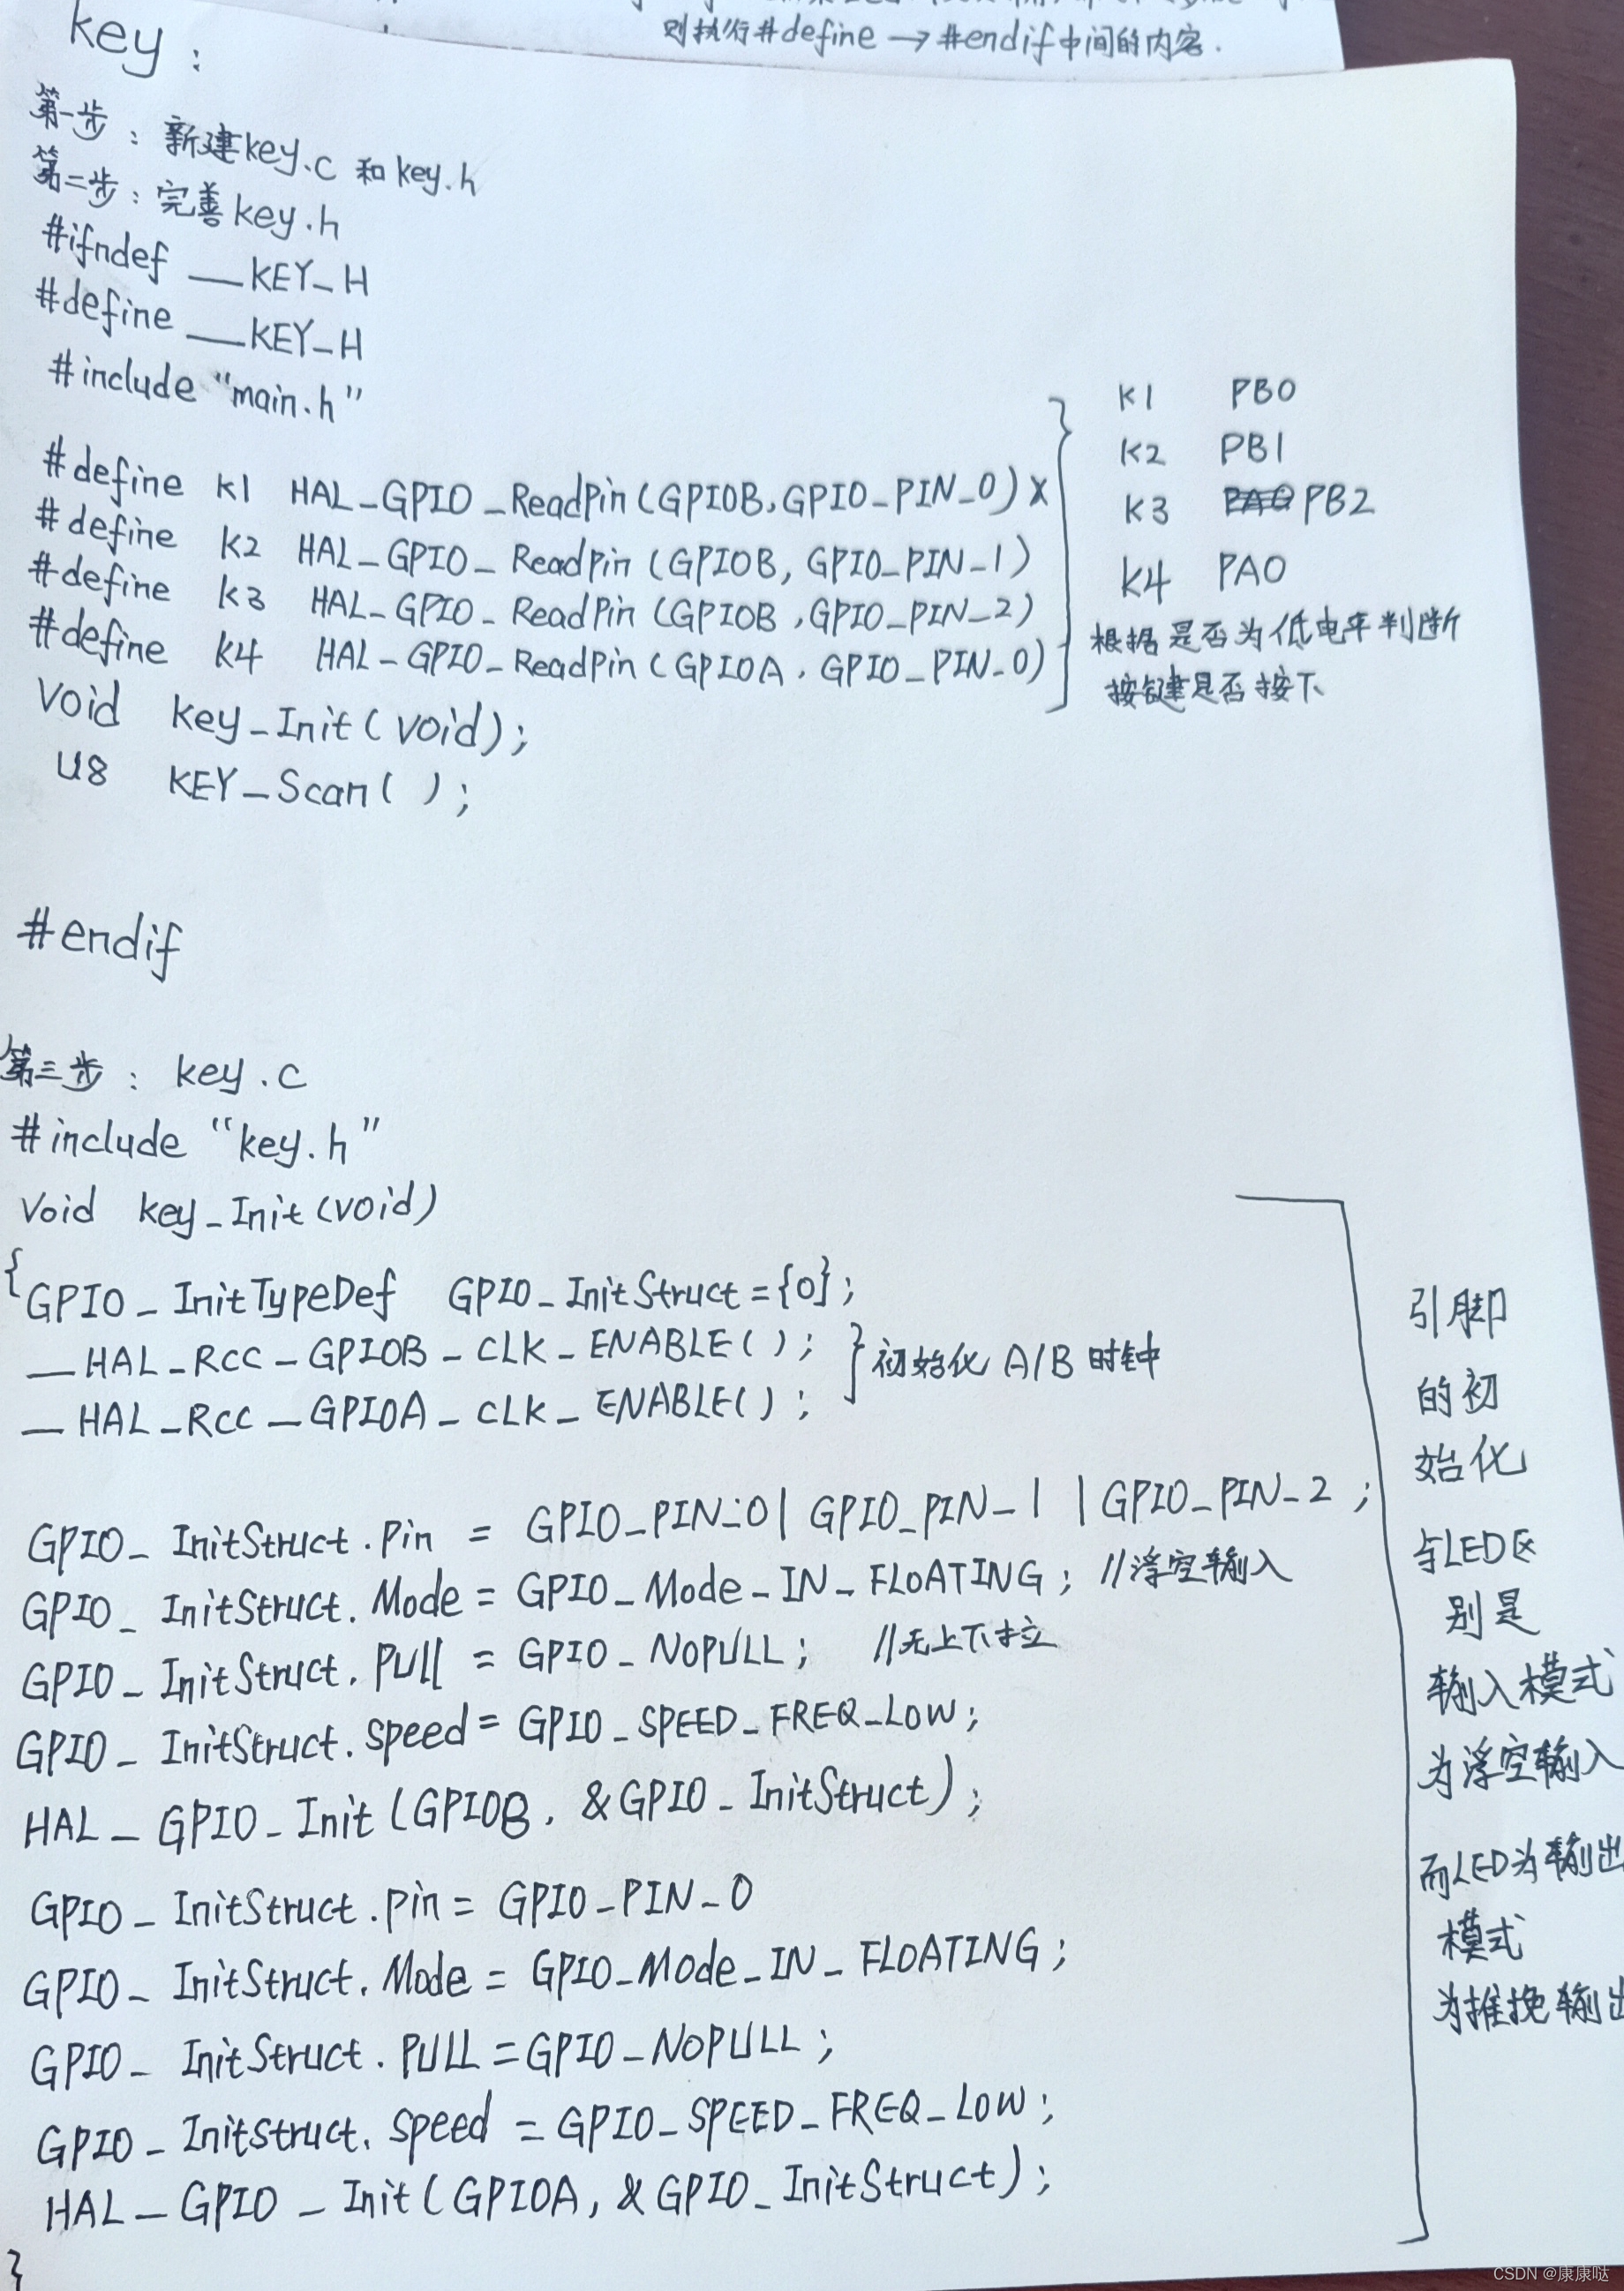 则执行#define → #endif中间的内容.
key:
第一步: 新建key.c 和key.h
第二步: 完善key.h
#ifndef __KEY_H
#define __KEY_H
#include “main.h”
#define K1 HAL_GPIO_ReadPin(GPIOB,GPIO_PIN_0)
#define K2 HAL_GPIO_ReadPin(GPIOB,GPIO_PIN_1)
#define K3 HAL_GPIO_ReadPin(GPIOB,GPIO_PIN_2)
#define K4 HAL_GPIO_ReadPin(GPIOA,GPIO_PIN_0)
K1 PB0
K2 PB1
K3 PB2
K4 PA0
根据是否为低电平判断
按键是否按下
void key_Init(void);
u8 KEY_Scan( );
#endif
第三步: key.c
#include “key.h”
void key_Init(void)
{
GPIO_InitTypeDef GPIO_InitStruct={0};
__HAL_RCC_GPIOB_CLK_ENABLE();
__HAL_RCC_GPIOA_CLK_ENABLE();
初始化A/B时钟
GPIO_InitStruct.Pin = GPIO_PIN_0| GPIO_PIN_1 |GPIO_PIN_2;
GPIO_InitStruct.Mode = GPIO_Mode_IN_FLOATING; //浮空输入
GPIO_InitStruct.PUll = GPIO_NOPULL; //无上下拉
GPIO_InitStruct.speed = GPIO_SPEED_FREQ_LOW;
HAL_GPIO_Init(GPIOB, &GPIO_InitStruct);
GPIO_InitStruct.pin = GPIO_PIN_0
GPIO_InitStruct.Mode = GPIO_Mode_IN_FLOATING;
GPIO_InitStruct.PULL = GPIO_NOPULL;
GPIO_InitStruct.speed = GPIO_SPEED_FREQ_LOW;
HAL_GPIO_Init(GPIOA, &GPIO_InitStruct);
}
引脚
的初
始化
与LED区
别是
输入模式
为浮空输入
而LED为输出
模式
为推挽输出
CSDN @康康哒